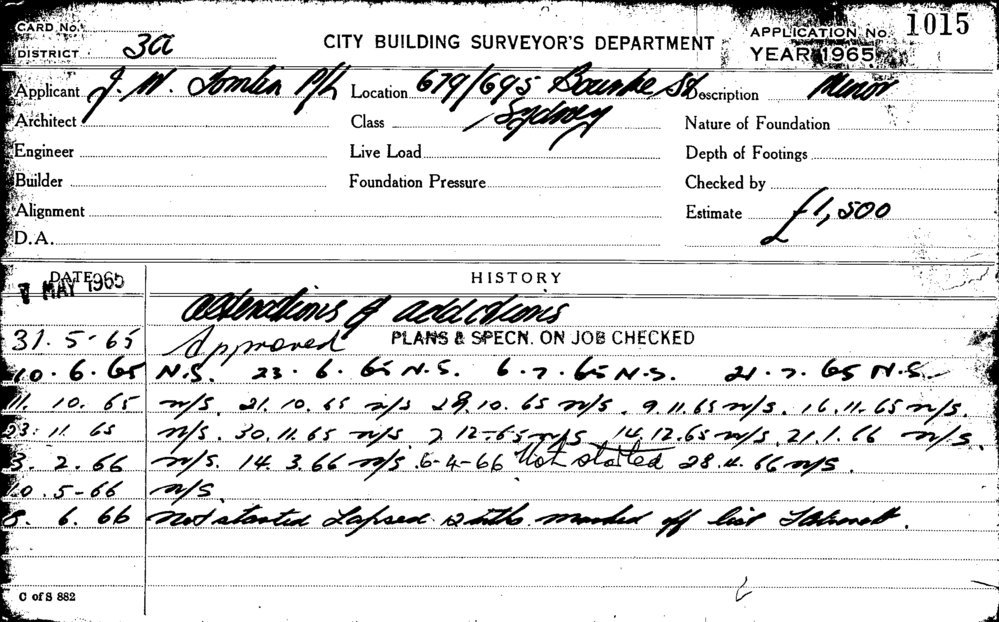 CARD No.
DISTRICT 3a
CITY BUILDING SURVEYOR'S DEPARTMENT
APPLICATION No. 1015
YEAR 1965
Applicant J. W. Tomlin P/L Location 679/695 Bourke St Description Minor
Architect Class Sydney Nature of Foundation
Engineer Live Load Depth of Footings
Builder Foundation Pressure Checked by
Alignment Estimate £1,500
D.A.
DATE HISTORY
7 MAY 1965 alterations & additions
31. 5-65 Approved PLANS & SPECN. ON JOB CHECKED
10.6.65 N.S. 23.6.65 N.S. 6.7.65 N.S. 21.7.65 N.S.
11.10.65 n/s. 21.10.65 n/s 28.10.65 n/s. 9.11.65 n/s. 16.11.65 n/s.
23.11.65 n/s. 30.11.65 n/s 7 12-65 n/s 14.12.65 n/s. 21.1.66 n/s.
3.2.66 n/s. 14.3.66 n/s. 6-4-66 Not started 28.4.66 n/s.
10.5-66 n/s
8.6.66 Not started Lapsed 12 mths marked off list
C of S 882